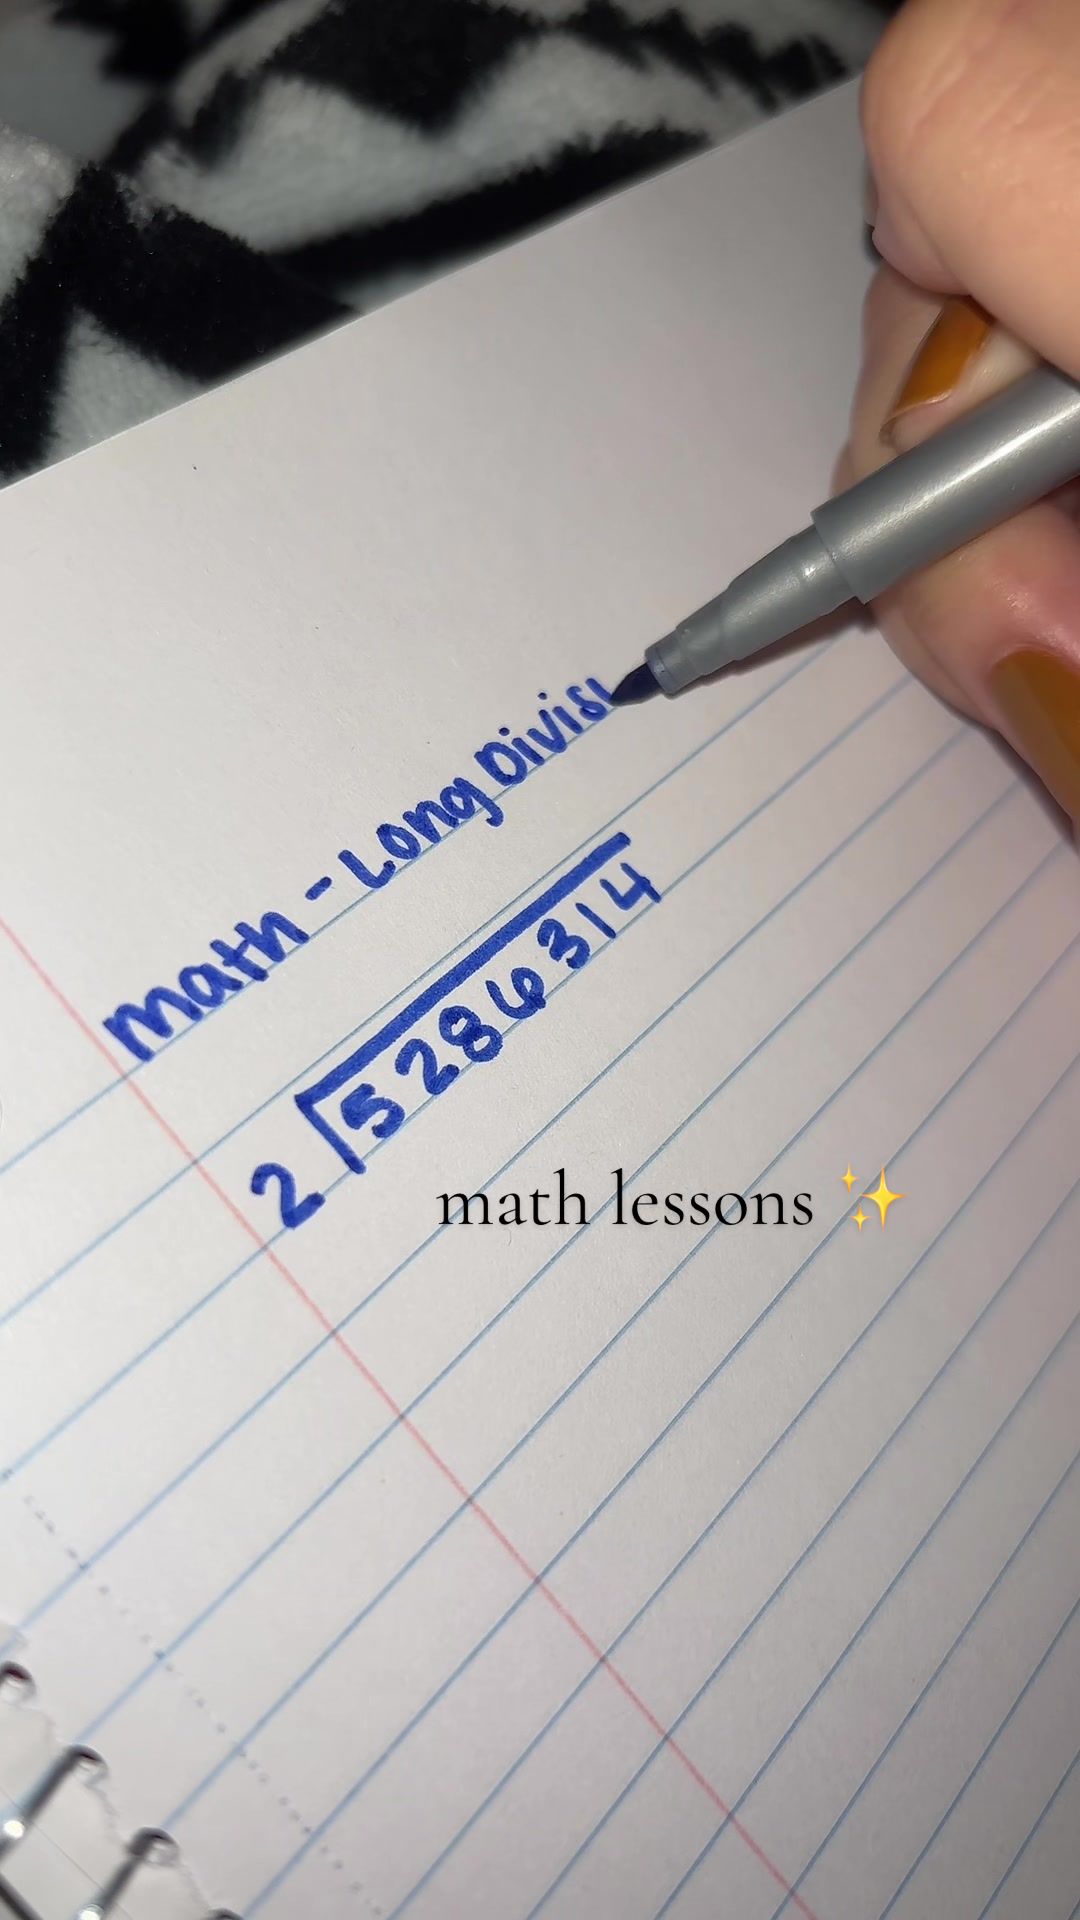 math - Long Divisi
2 5286314
math lessons ✨